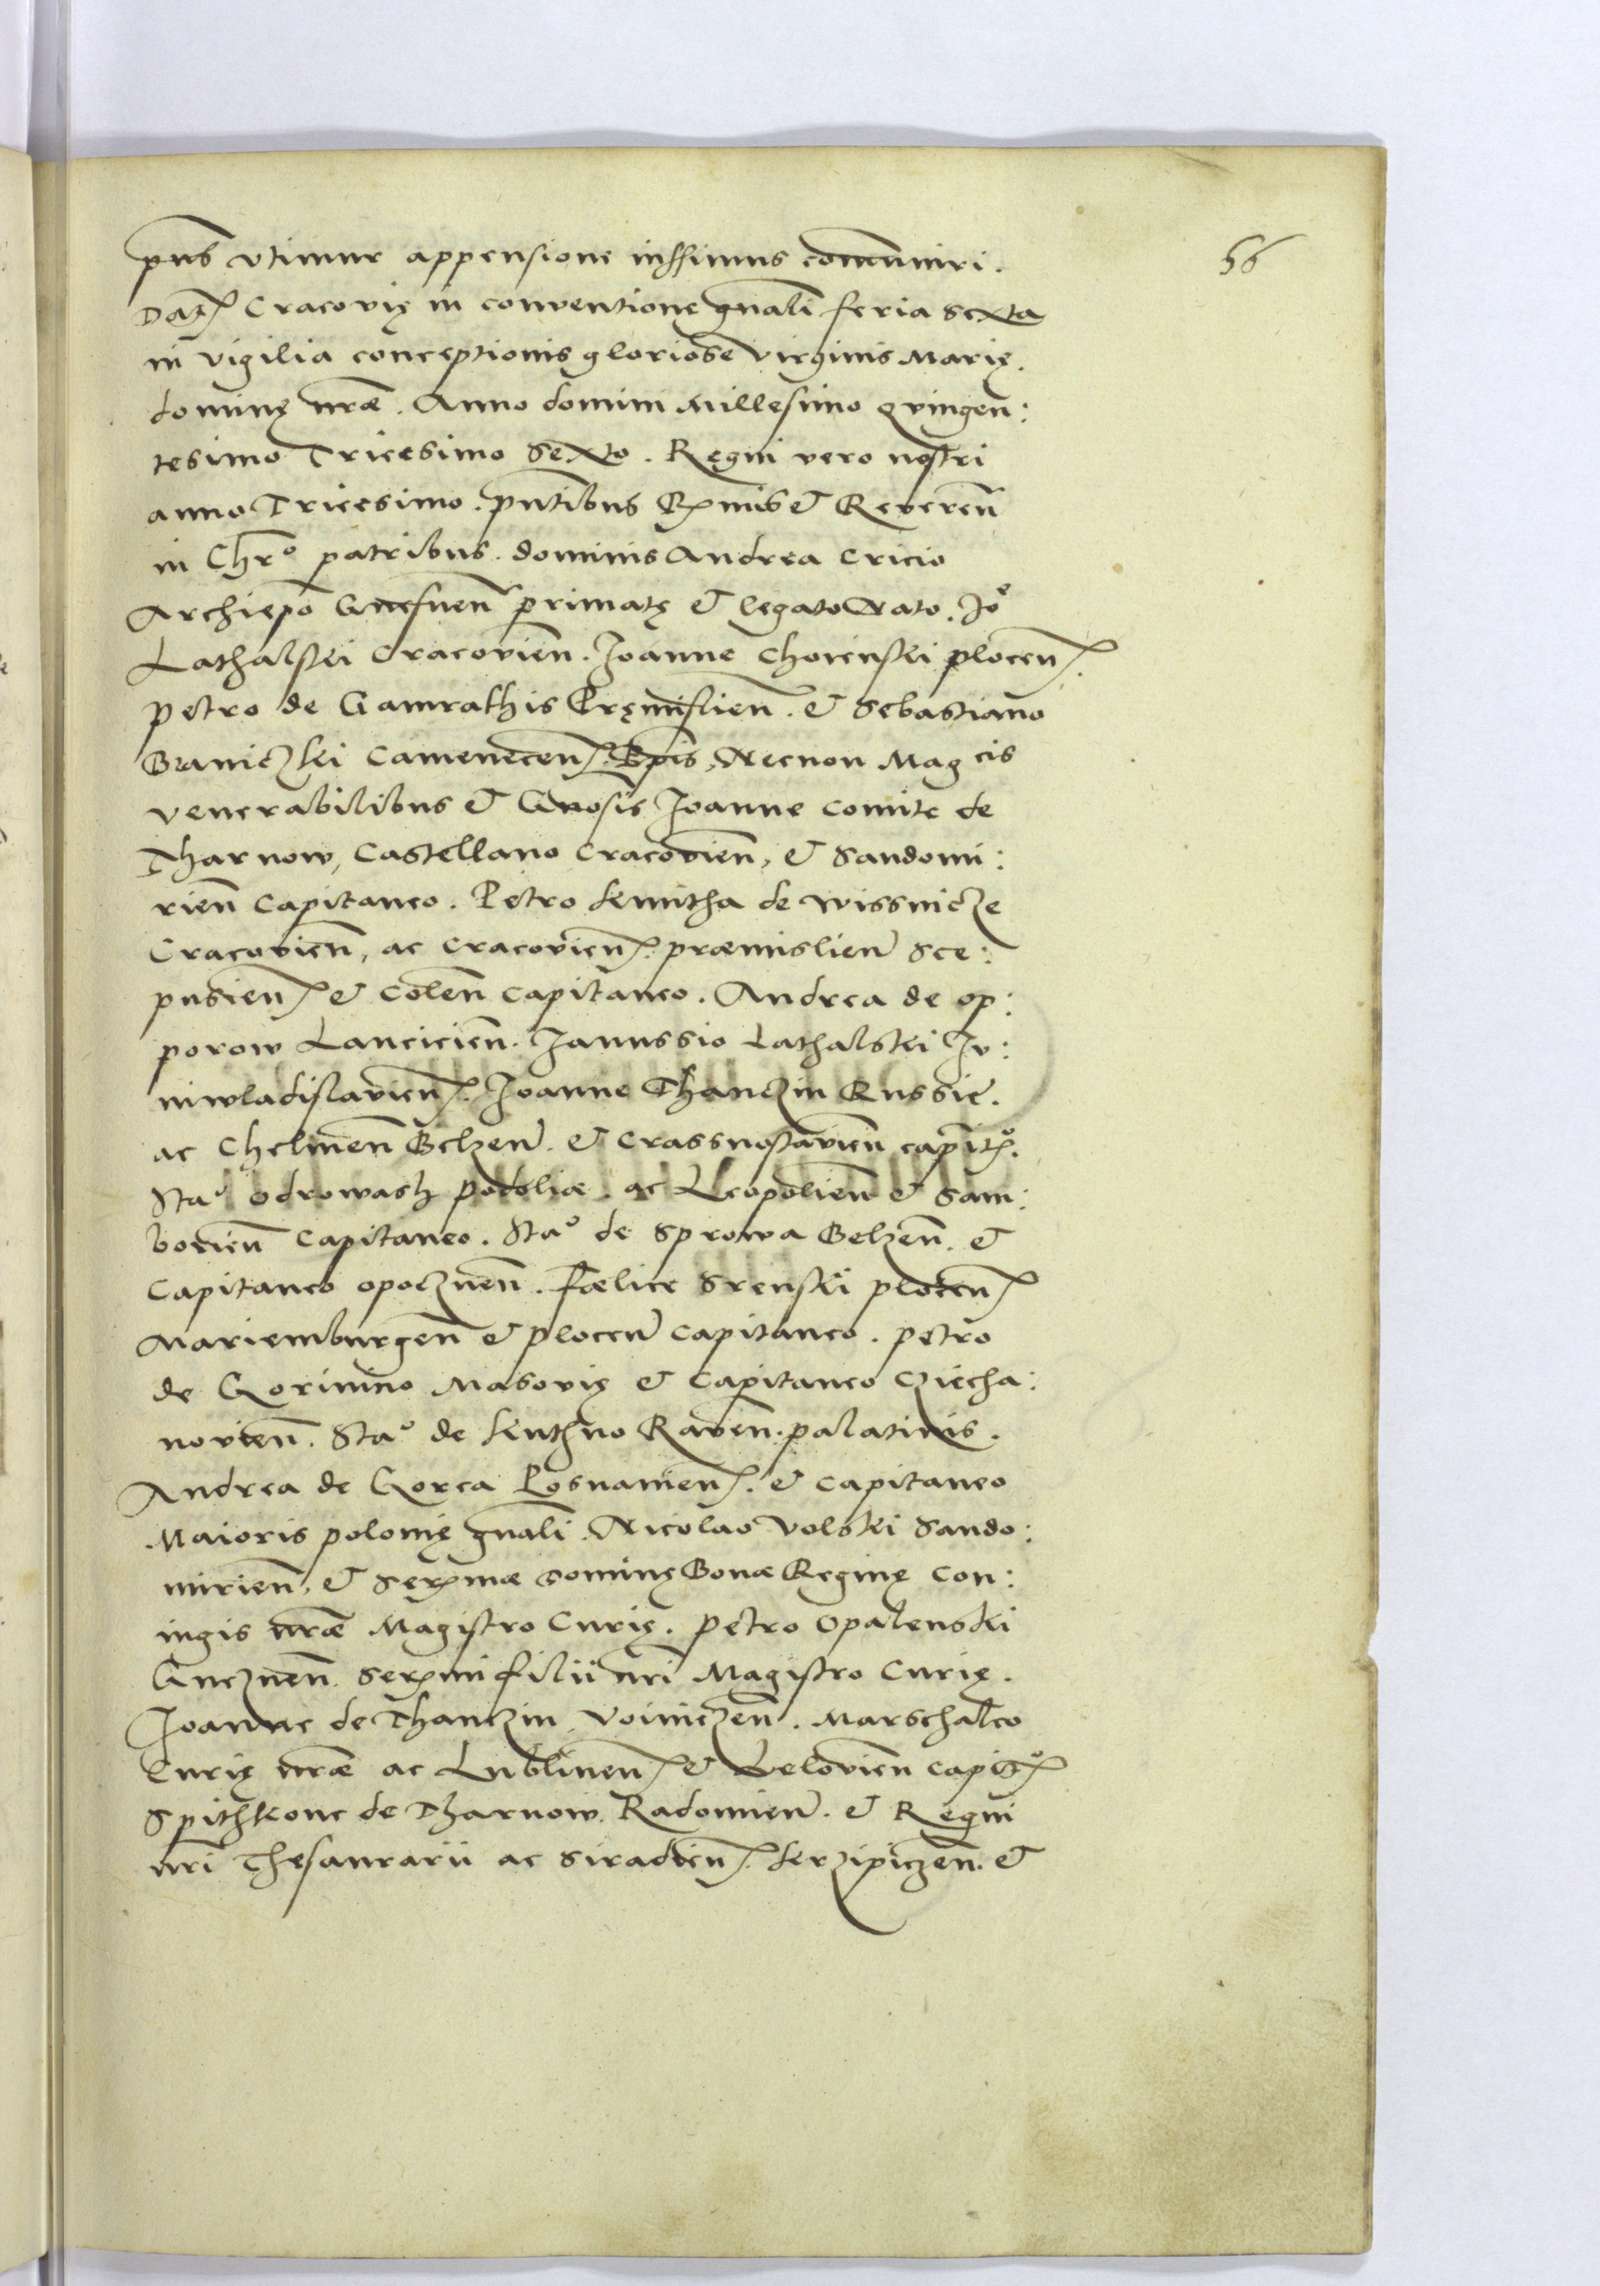 56
pn̄s vtimur appensione iussimus com̄uniri.
Dat. Cracovię in conventione gn̄ali feria sexta
in vigilia conceptionis gloriosę virginis Marię.
dominę nr̄æ. Anno domini Millesimo qvingen:
tesimo Tricesimo Sexto. Regni vero nostri
anno Tricesimo. pn̄tibus Rx̄mis & Reveren̄
in Chr̄o patribus. dominis Andrea Cricio
Archiep̄o Gnesnen̄ primatę & legato Nato. Jo̊
Lathalski Cracovien̄. Joanne Choienski plocen̄.
Petro de Gamrathis Pręmislien̄. & Sebastiano
Braniczki Camenecen̄. Ep̄is, Necnon Mag cis
venerabilibus & Gn̄osis Joanne Comite de
Tharnow, Castellano Cracovien̄, & Sandomi:
rien̄ Capitaneo. Petro Kmitha de Wissnicze
Cracovien̄, ac Cracovien̄. præmislien̄ Sce:
pusien̄. & Colen̄ Capitaneo. Andrea de Op:
porow Lancicien̄. Janussio Lathalski Iu:
niwladislavien̄. Joanne Thanczin Russię.
ac Chelmen̄ Belzen̄. & Crassnostavien̄ capit̊.
Sta° Odrowasz podoliæ. ac Leopolien̄ & Sam:
borien̄ Capitaneo. Sta° de Sprowa Belzen̄. &
Capitaneo opocznen̄. Fœlice Srenski plocen̄.
Mariemburgen̄ & plocen̄ Capitaneo. Petro
de Gorinino Masovię & Capitaneo Cziecha:
novien̄. Sta° de Kuthno Raven̄. palatinis.
Andrea de Gorca Posnanien̄. & Capitaneo
Maioris polonię gn̄ali. Nicolao Volski Sando:
mirien̄, & Serx̄mæ dominę Bonæ Reginę Con:
iugis nr̄æ Magistro Curię. Petro Opalenski
Gneznen̄. Serx̄mi filii nr̄i Magistro Curię.
Joanne de Thanczin Voiniczen̄. Marschalco
Curię nr̄æ ac Lublinen̄. & Lelovien̄ Capit̊.
Spithkone de Tharnow Radomien̄. & Regni
nr̄i Thesaurarii ac Siradien̄. Kerzipiczen̄. &